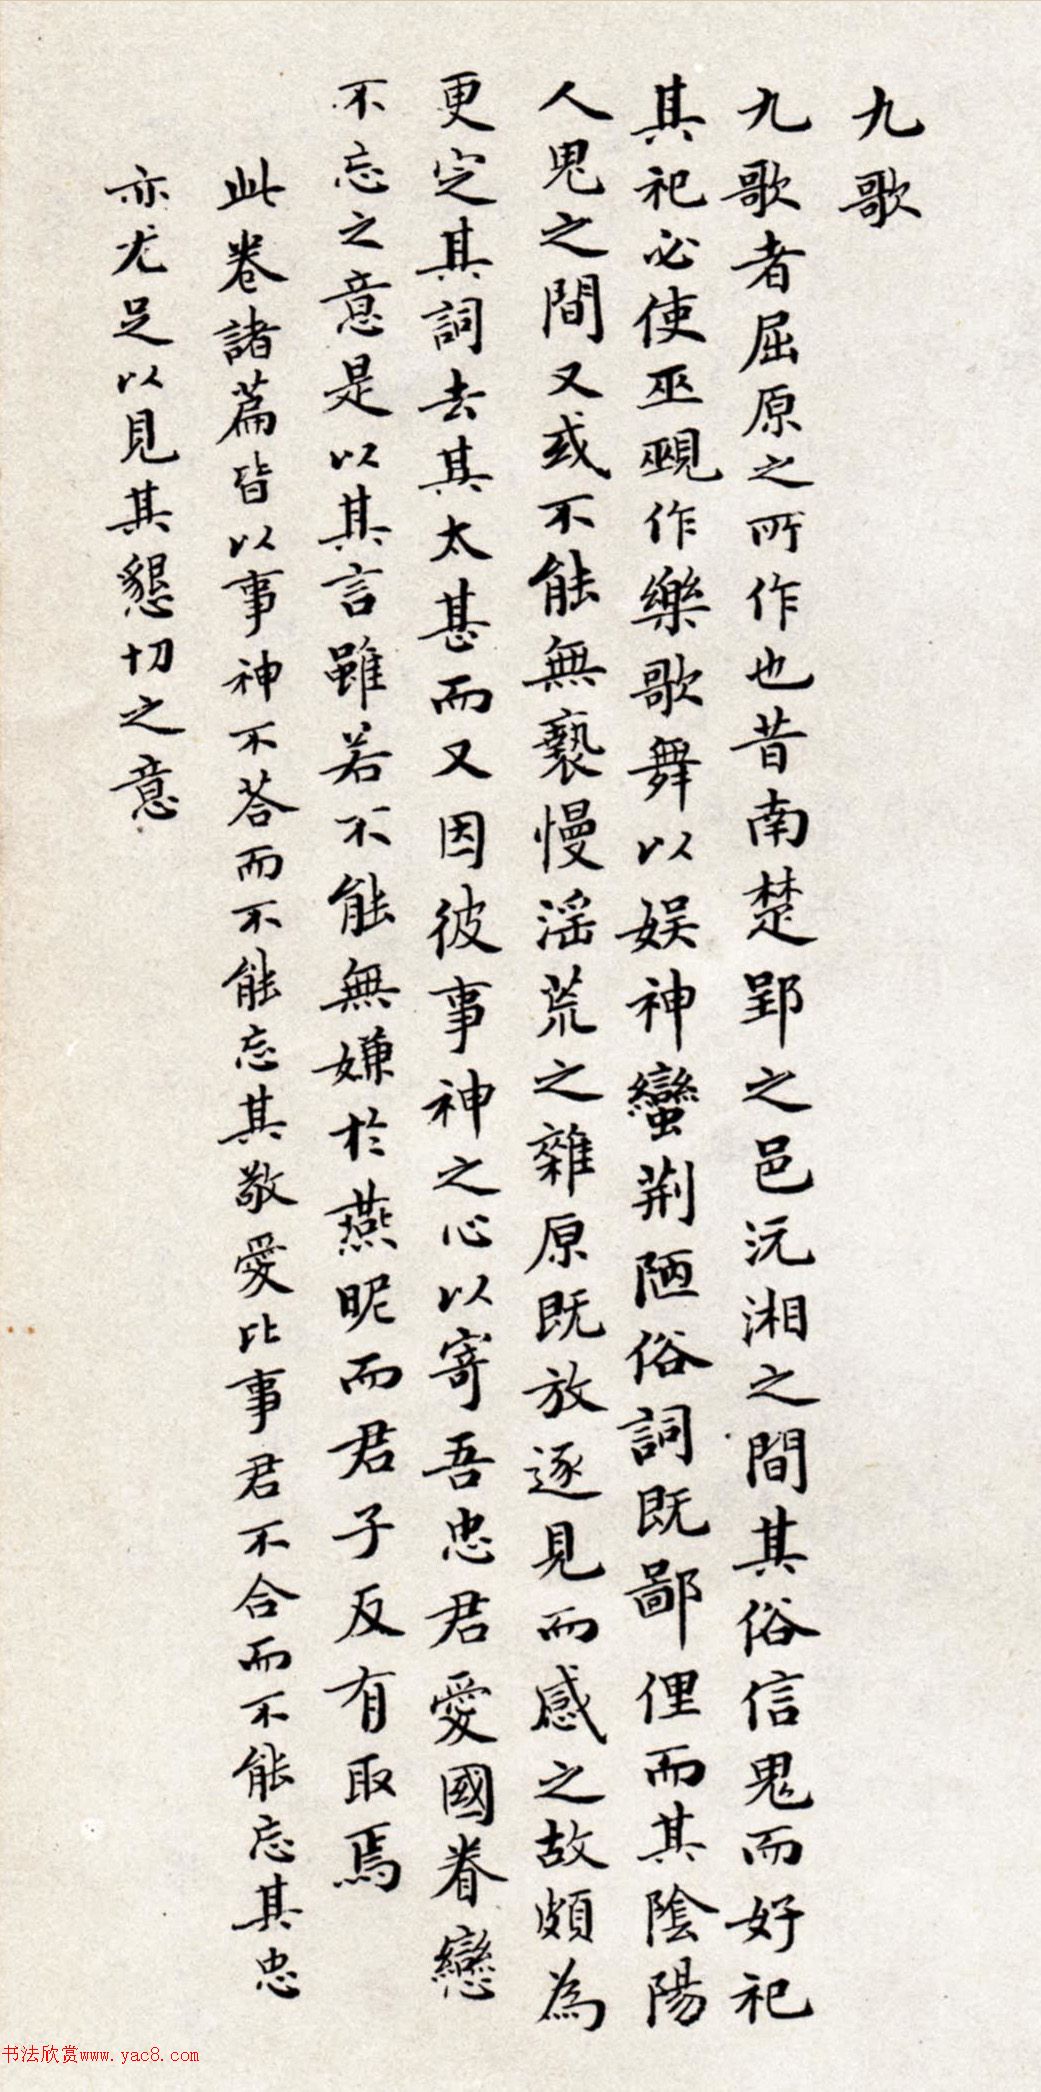 九歌
九歌者屈原之所作也昔南楚郢之邑沅湘之間其俗信鬼而好祀
其祀必使巫覡作樂歌舞以娛神蠻荆陋俗詞既鄙俚而其陰陽
人鬼之間又或不能無褻慢淫荒之雜原既放逐見而感之故頗為
更定其詞去其太甚而又因彼事神之心以寄吾忠君愛國眷戀
不忘之意是以其言雖若不能無嫌於燕昵而君子反有取焉
此卷諸篇皆以事神不荅而不能忘其敬愛比事君不合而不能忘其忠
亦尤足以見其懇切之意
书法欣赏www.yac8.com